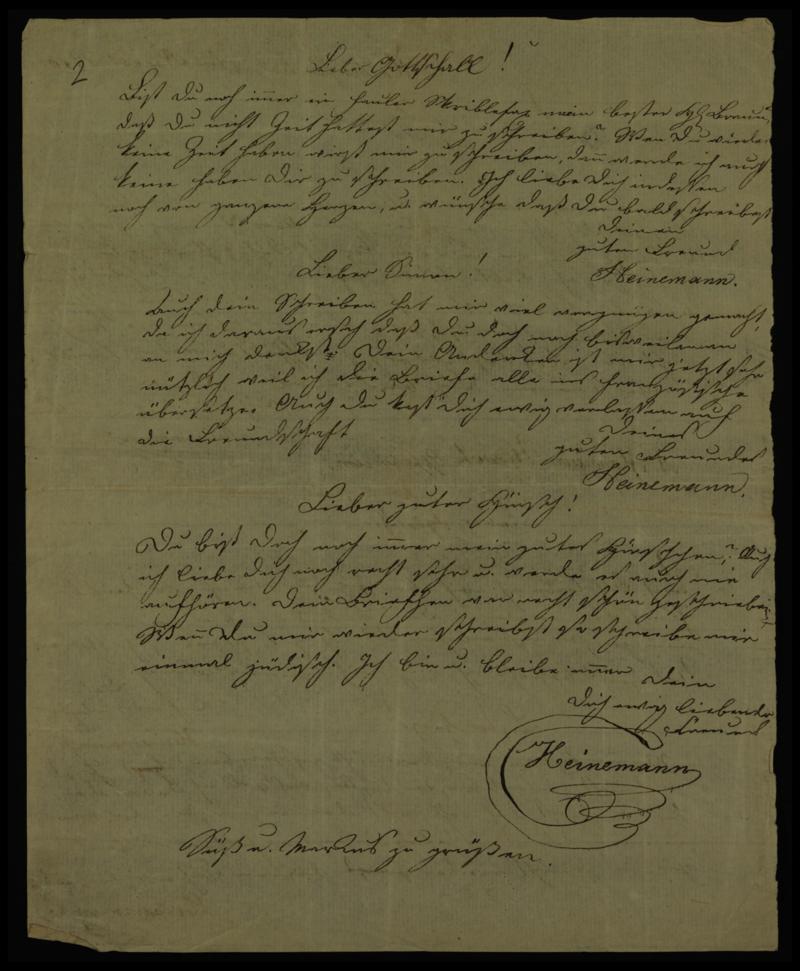 2
Lieber Gottschall!
Bist Du noch immer ein fauler Skriblefax mein bester
daß Du nicht Zeit hattest mir zu schreiben? Wen Du wieder
keine Zeit haben wirst mir zu schreiben, dann werde ich auch
keine haben Dir zu schreiben. Ich liebe Dich indessen
noch von ganzem Herzen, u. wünsche daß Du bald schreibest
Deinem
guten Freund
Heinemann.
Lieber Simon!
Auch dein Schreiben hat mir viel vergnügen gemacht,
da ich daraus ersah daß Du doch noch bisweilen
an mich denkst. Dein Andenken ist mir jetzt sehr
nützlich weil ich die Briefe alle ins französische
übersetze. Auch Du kast Dich ewig verlassen auf
die Freundschaft
Deines
guten Freundes
Heinemann.
Lieber guter Hirsch!
Du bist doch noch immer mein gutes Hirschchen? Auch
ich liebe Dich noch recht sehr u. werde es auch nie
aufhören. Dein Briefchen war recht schön geschrieben
Wenn Du mir wieder schreibst so schreibe mir
einmal jüdisch. Ich bin u. bleibe immer Dein
Dich ewig liebender
Freund
Heinemann
Süß u. Markus zu grüßen.